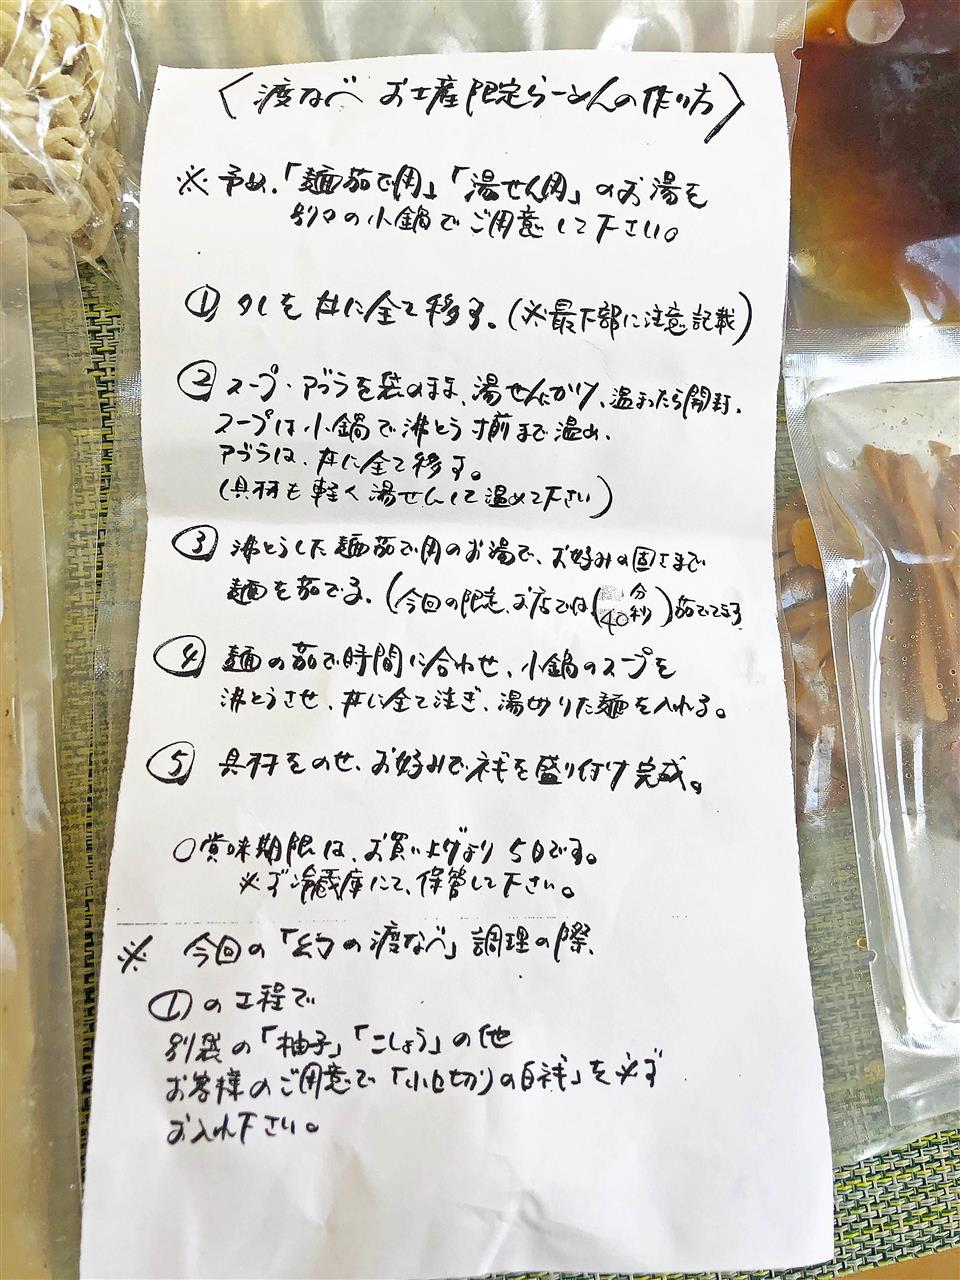 〈渡なべ お土産限定らーめんの作り方〉
※予め、「麺茹で用」「湯せん用」のお湯を
別々の小鍋でご用意して下さい。
① タレを丼に全て移す。(※最下部に注意記載)
② スープ・アブラを袋のまま、湯せんにかけ、温まったら開封、
スープは小鍋で沸とう寸前まで温め、
アブラは、丼に全て移す。
(具材も軽く湯せんして温めて下さい)
③ 沸とうした麺茹で用のお湯で、お好みの固さまで
麺を茹でる。(今回の限定、お店では(40分秒)茹でてます
④ 麺の茹で時間に合わせ、小鍋のスープを
沸とうさせ、丼に全て注ぎ、湯切りた麺を入れる。
⑤ 具材をのせ、お好みでネギを盛り付け完成。
○賞味期限は、お買い上げより5日です。
※必ず冷蔵庫にて、保管して下さい。
※ 今回の「幻の渡なべ」調理の際、
①の工程で
別袋の「柚子」「こしょう」の他
お客様のご用意で「小口切りの白ネギ」を必ず
お入れ下さい。